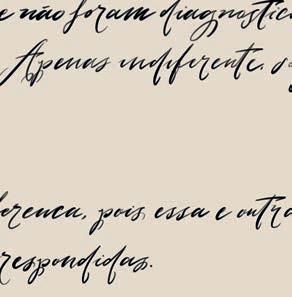 e não foram diagnostic
Apenas indiferente. s
ferença, pois essa e outra
respondidas.